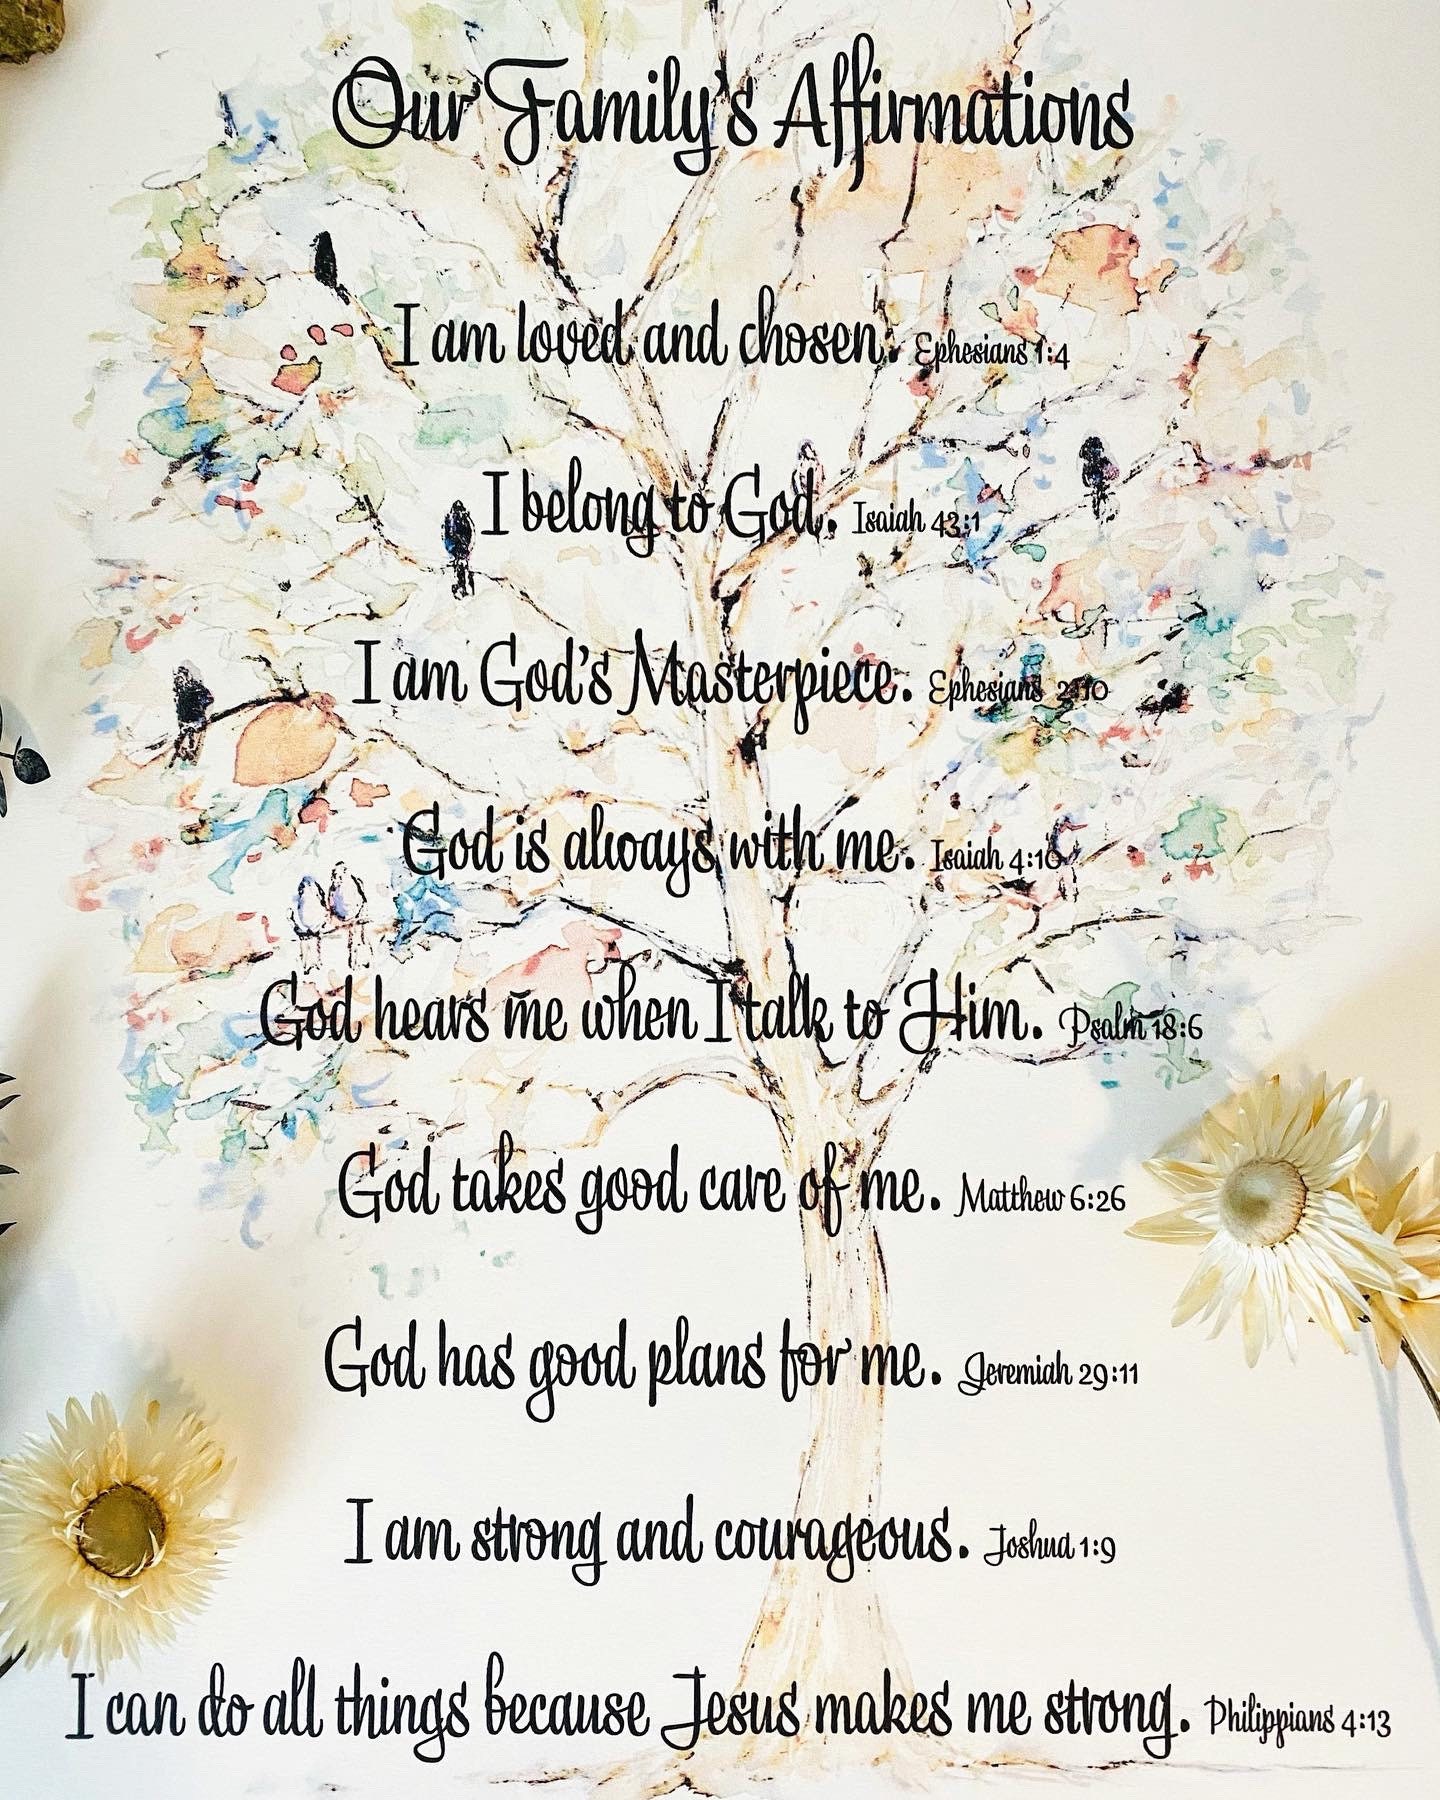 Our Family's Affirmations
I am loved and chosen. Ephesians 1:4
I belong to God. Isaiah 43:1
I am God's Masterpiece. Ephesians 2:10
God is always with me. Isaiah 4:10
God hears me when I talk to Him. Psalm 18:6
God takes good care of me. Matthew 6:26
God has good plans for me. Jeremiah 29:11
I am strong and courageous. Joshua 1:9
I can do all things because Jesus makes me strong. Philippians 4:13